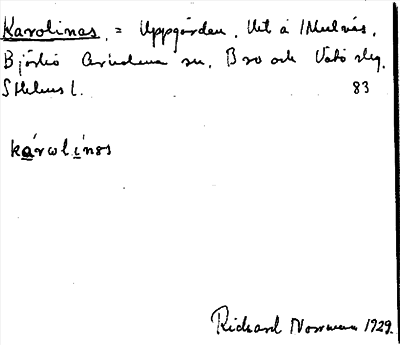 Karolinas, = Uppgården, Vit à 1 Mulnäs,
Björkö Arholma sn, Bro och Vätö slg.
Sthlms l. 83
károlínas
Richard Norrman 1929.